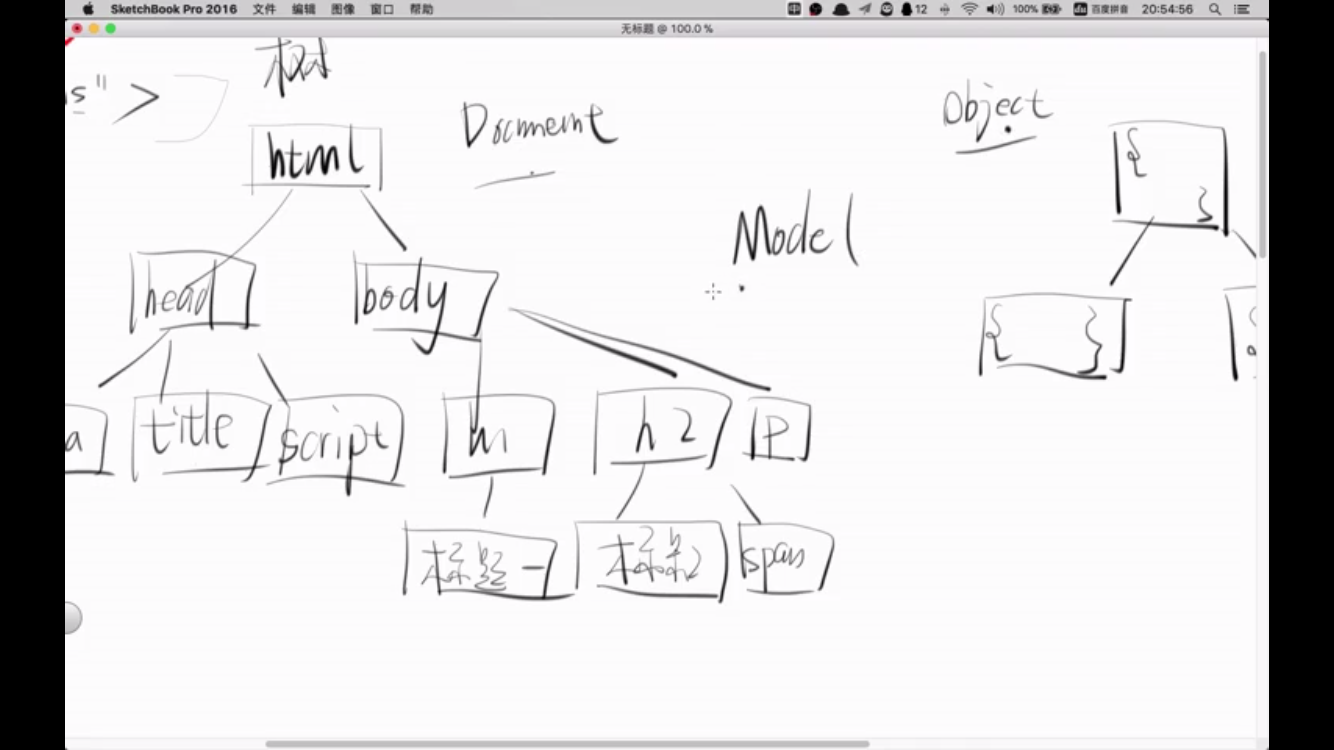 SketchBook Pro 2016 文件 编辑 图像 窗口 帮助 12 100% 百度拼音 20:54:56
无标题 @ 100.0 %
树
s" >
Document
Object
html
{
}
Model
head
body
{ }
{
a
title
script
h1
h2
P
标题一
span